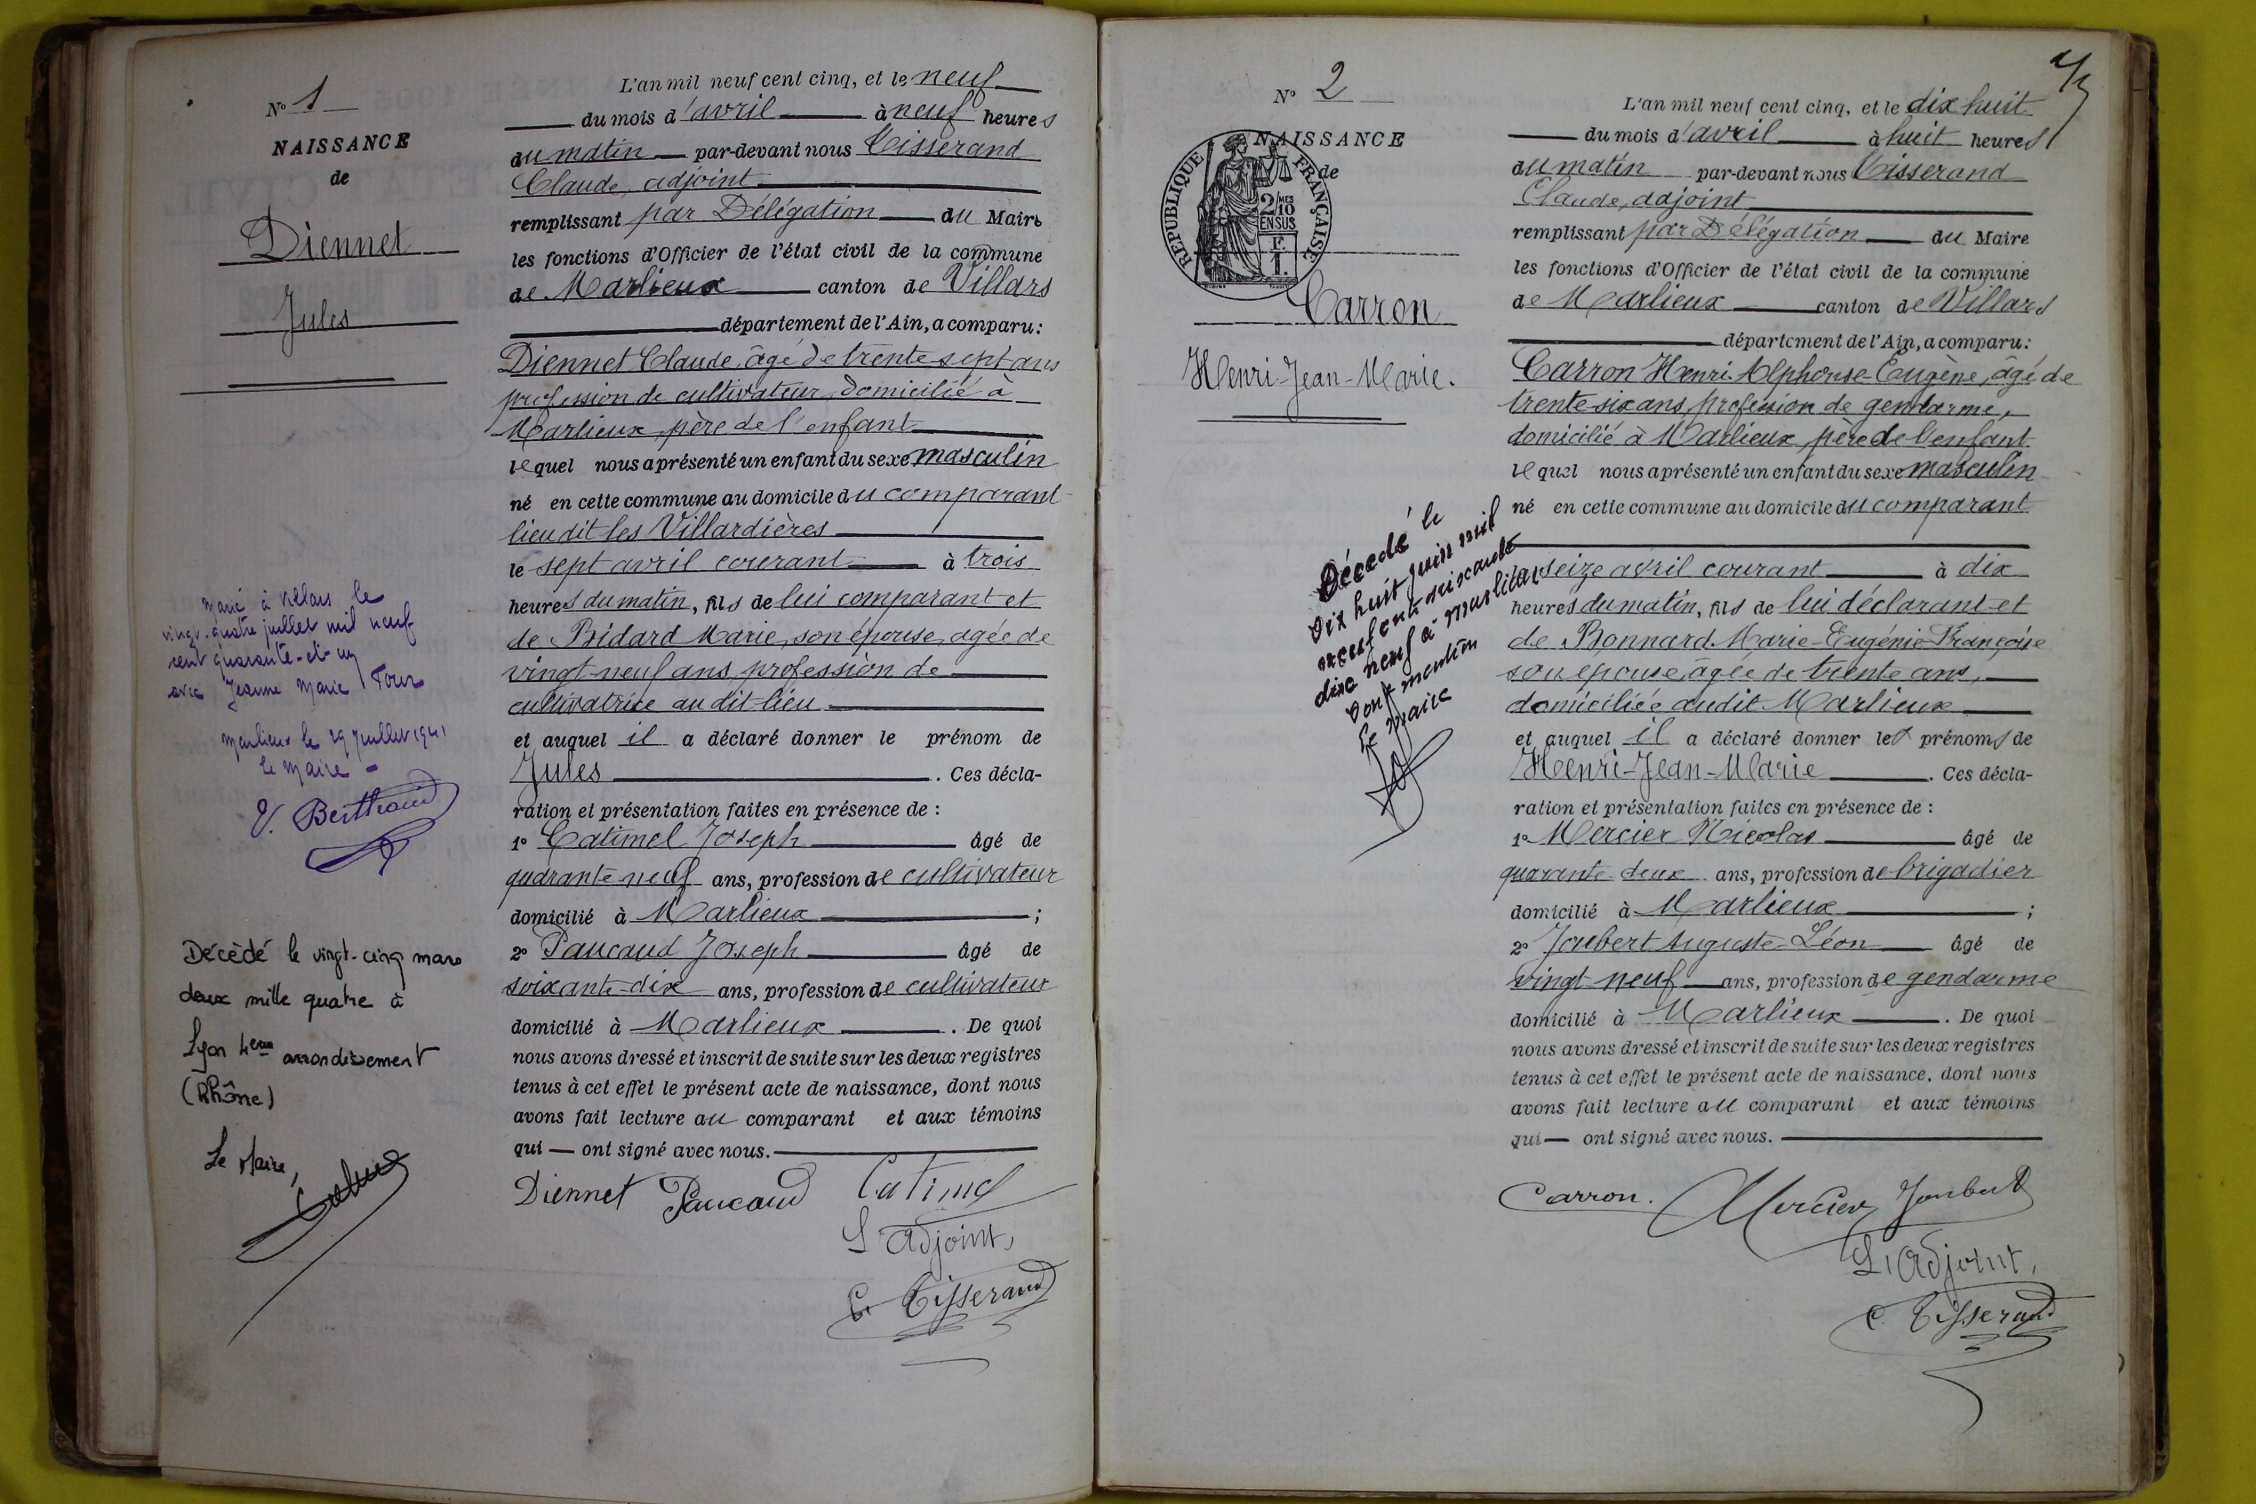 N° 1
NAISSANCE
de
Diennet
Jules
marié à Villars le
vingt-quatre juillet mil neuf
cent quarante-et-un
avec Jeanne Marie Four
Marlieux le 29 juillet 1941
le Maire
V. Berthaud
Décédé le vingt-cinq mars
deux mille quatre à
Lyon 4ème arrondissement
(Rhône)
Le Maire,
L'an mil neuf cent cinq, et le neuf
du mois d'avril à neuf heures
du matin par-devant nous Tisserand
Claude, adjoint
remplissant par Délégation du Maire
les fonctions d'Officier de l'état civil de la commune
de Marlieux canton de Villars
département de l'Ain, a comparu:
Diennet Claude, âgé de trente-sept ans
profession de cultivateur, domicilié à
Marlieux, père de l'enfant
lequel nous a présenté un enfant du sexe masculin
né en cette commune au domicile du comparant
lieu dit les Villardières
le sept avril courant à trois
heures du matin, fils de lui comparant et
de Bidard Marie, son épouse, agée de
vingt-neuf ans, profession de
cultivatrice au dit-lieu
et auquel il a déclaré donner le prénom de
Jules. Ces décla-
ration et présentation faites en présence de :
1° Catimel Joseph âgé de
quarante-neuf ans, profession de cultivateur
domicilié à Marlieux ;
2° Paucaud Joseph âgé de
soixante-dix ans, profession de cultivateur
domicilié à Marlieux. De quoi
nous avons dressé et inscrit de suite sur les deux registres
tenus à cet effet le présent acte de naissance, dont nous
avons fait lecture au comparant et aux témoins
qui — ont signé avec nous.
Diennet Paucaud Catimel
L'adjoint,
C. Tisserand
4/7
N° 2
NAISSANCE
de
REPUBLIQUE FRANÇAISE
2/10 MES
EN SUS
F.
1.
Carron
Henri-Jean-Marie.
Décédé le
dix huit juin mil
neuf cent soixante
dix neuf à Marlieux
Dont mention
Le Maire
L'an mil neuf cent cinq, et le dix huit
du mois d'avril à huit heures
du matin par-devant nous Tisserand
Claude, adjoint
remplissant par Délégation du Maire
les fonctions d'Officier de l'état civil de la commune
de Marlieux canton de Villars
département de l'Ain, a comparu:
Carron Henri-Alphonse-Eugène, âgé de
trente-six ans, profession de gendarme,
domicilié à Marlieux, père de l'enfant
lequel nous a présenté un enfant du sexe masculin
né en cette commune au domicile du comparant
le seize avril courant à dix
heures du matin, fils de lui déclarant et
de Bonnard Marie-Eugénie-Françoise
son épouse, âgée de trente ans,
domiciliée audit Marlieux
et auquel il a déclaré donner les prénoms de
Henri-Jean-Marie. Ces décla-
ration et présentation faites en présence de :
1° Mercier Nicolas âgé de
quarante-deux ans, profession de brigadier
domicilié à Marlieux ;
2° Joubert Auguste-Léon âgé de
vingt-neuf ans, profession de gendarme
domicilié à Marlieux. De quoi
nous avons dressé et inscrit de suite sur les deux registres
tenus à cet effet le présent acte de naissance, dont nous
avons fait lecture au comparant et aux témoins
qui — ont signé avec nous.
Carron. Mercier Joubert
L'adjoint,
C. Tisserand